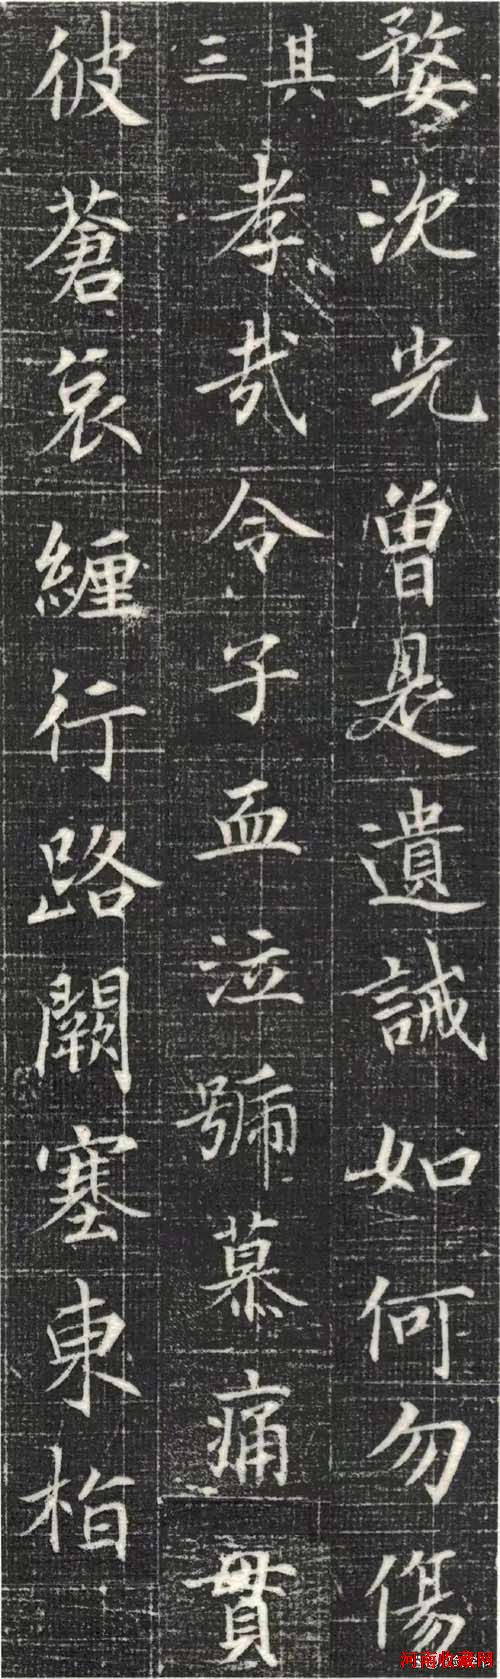 婺沇光曾是遺誡如何勿傷
其三孝哉令子血泣號慕痛貫
彼蒼哀纏行路闕塞東柏
河南收藏网